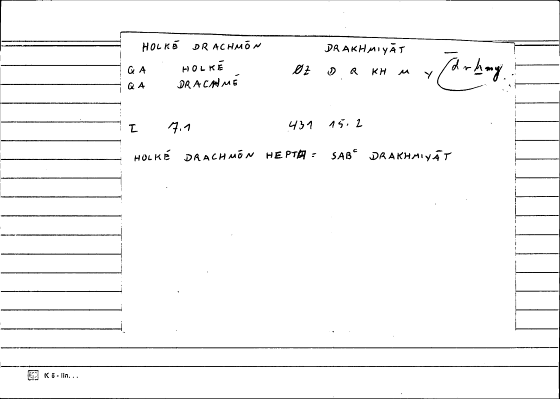 HOLKĒ DRACHMŌN DRAKHMIYĀT
GA HOLKĒ ØZ D R KH M Y drhmy
GA DRACHMĒ
I 7.1 431 15.2
HOLKĒ DRACHMŌN HEPTA = SABᶜ DRAKHMIYĀT
K 5 - lin...